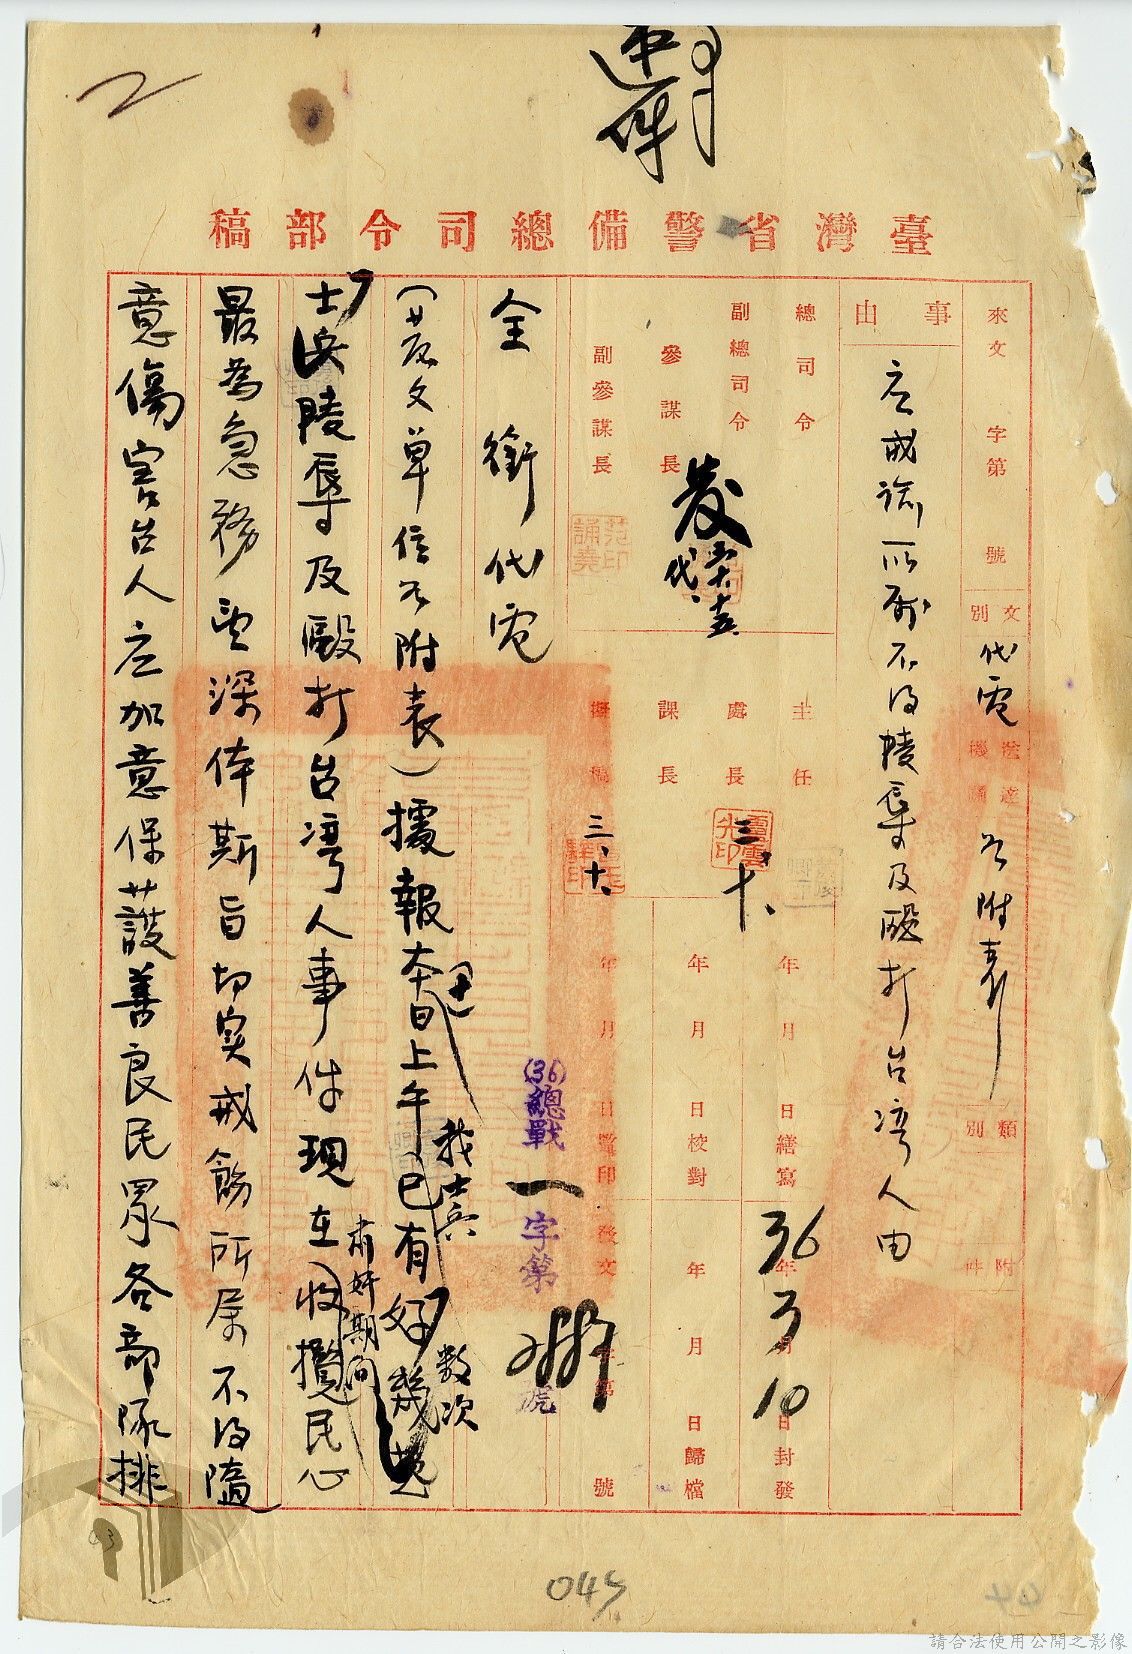 速件
臺灣省警備總司令部稿
來文 字第 號
文別 代電
送達機關 各附表
類別
附件
事由
应戒諭所屬不得陵辱及毆打台湾人由
總司令
副總司令
參謀長
副參謀長
代
主任
處長
課長
擬稿
三、十、
三、十、
年 月 日繕寫
年 月 日校對
年 月 日監印
36年3月10日封發
年 月 日歸檔
發文 字第 號
(36)總戰一字第 號
全銜代電
(收文單位各附表)據報本日上午已有好幾起
我士兵
数次
士兵陵辱及毆打台湾人事件現在收攬民心
肅奸期间
最為急務望深体斯旨切实戒飭所屬不得隨
意傷害台人应加意保護善良民眾各部隊排
043
請合法使用公開之影像